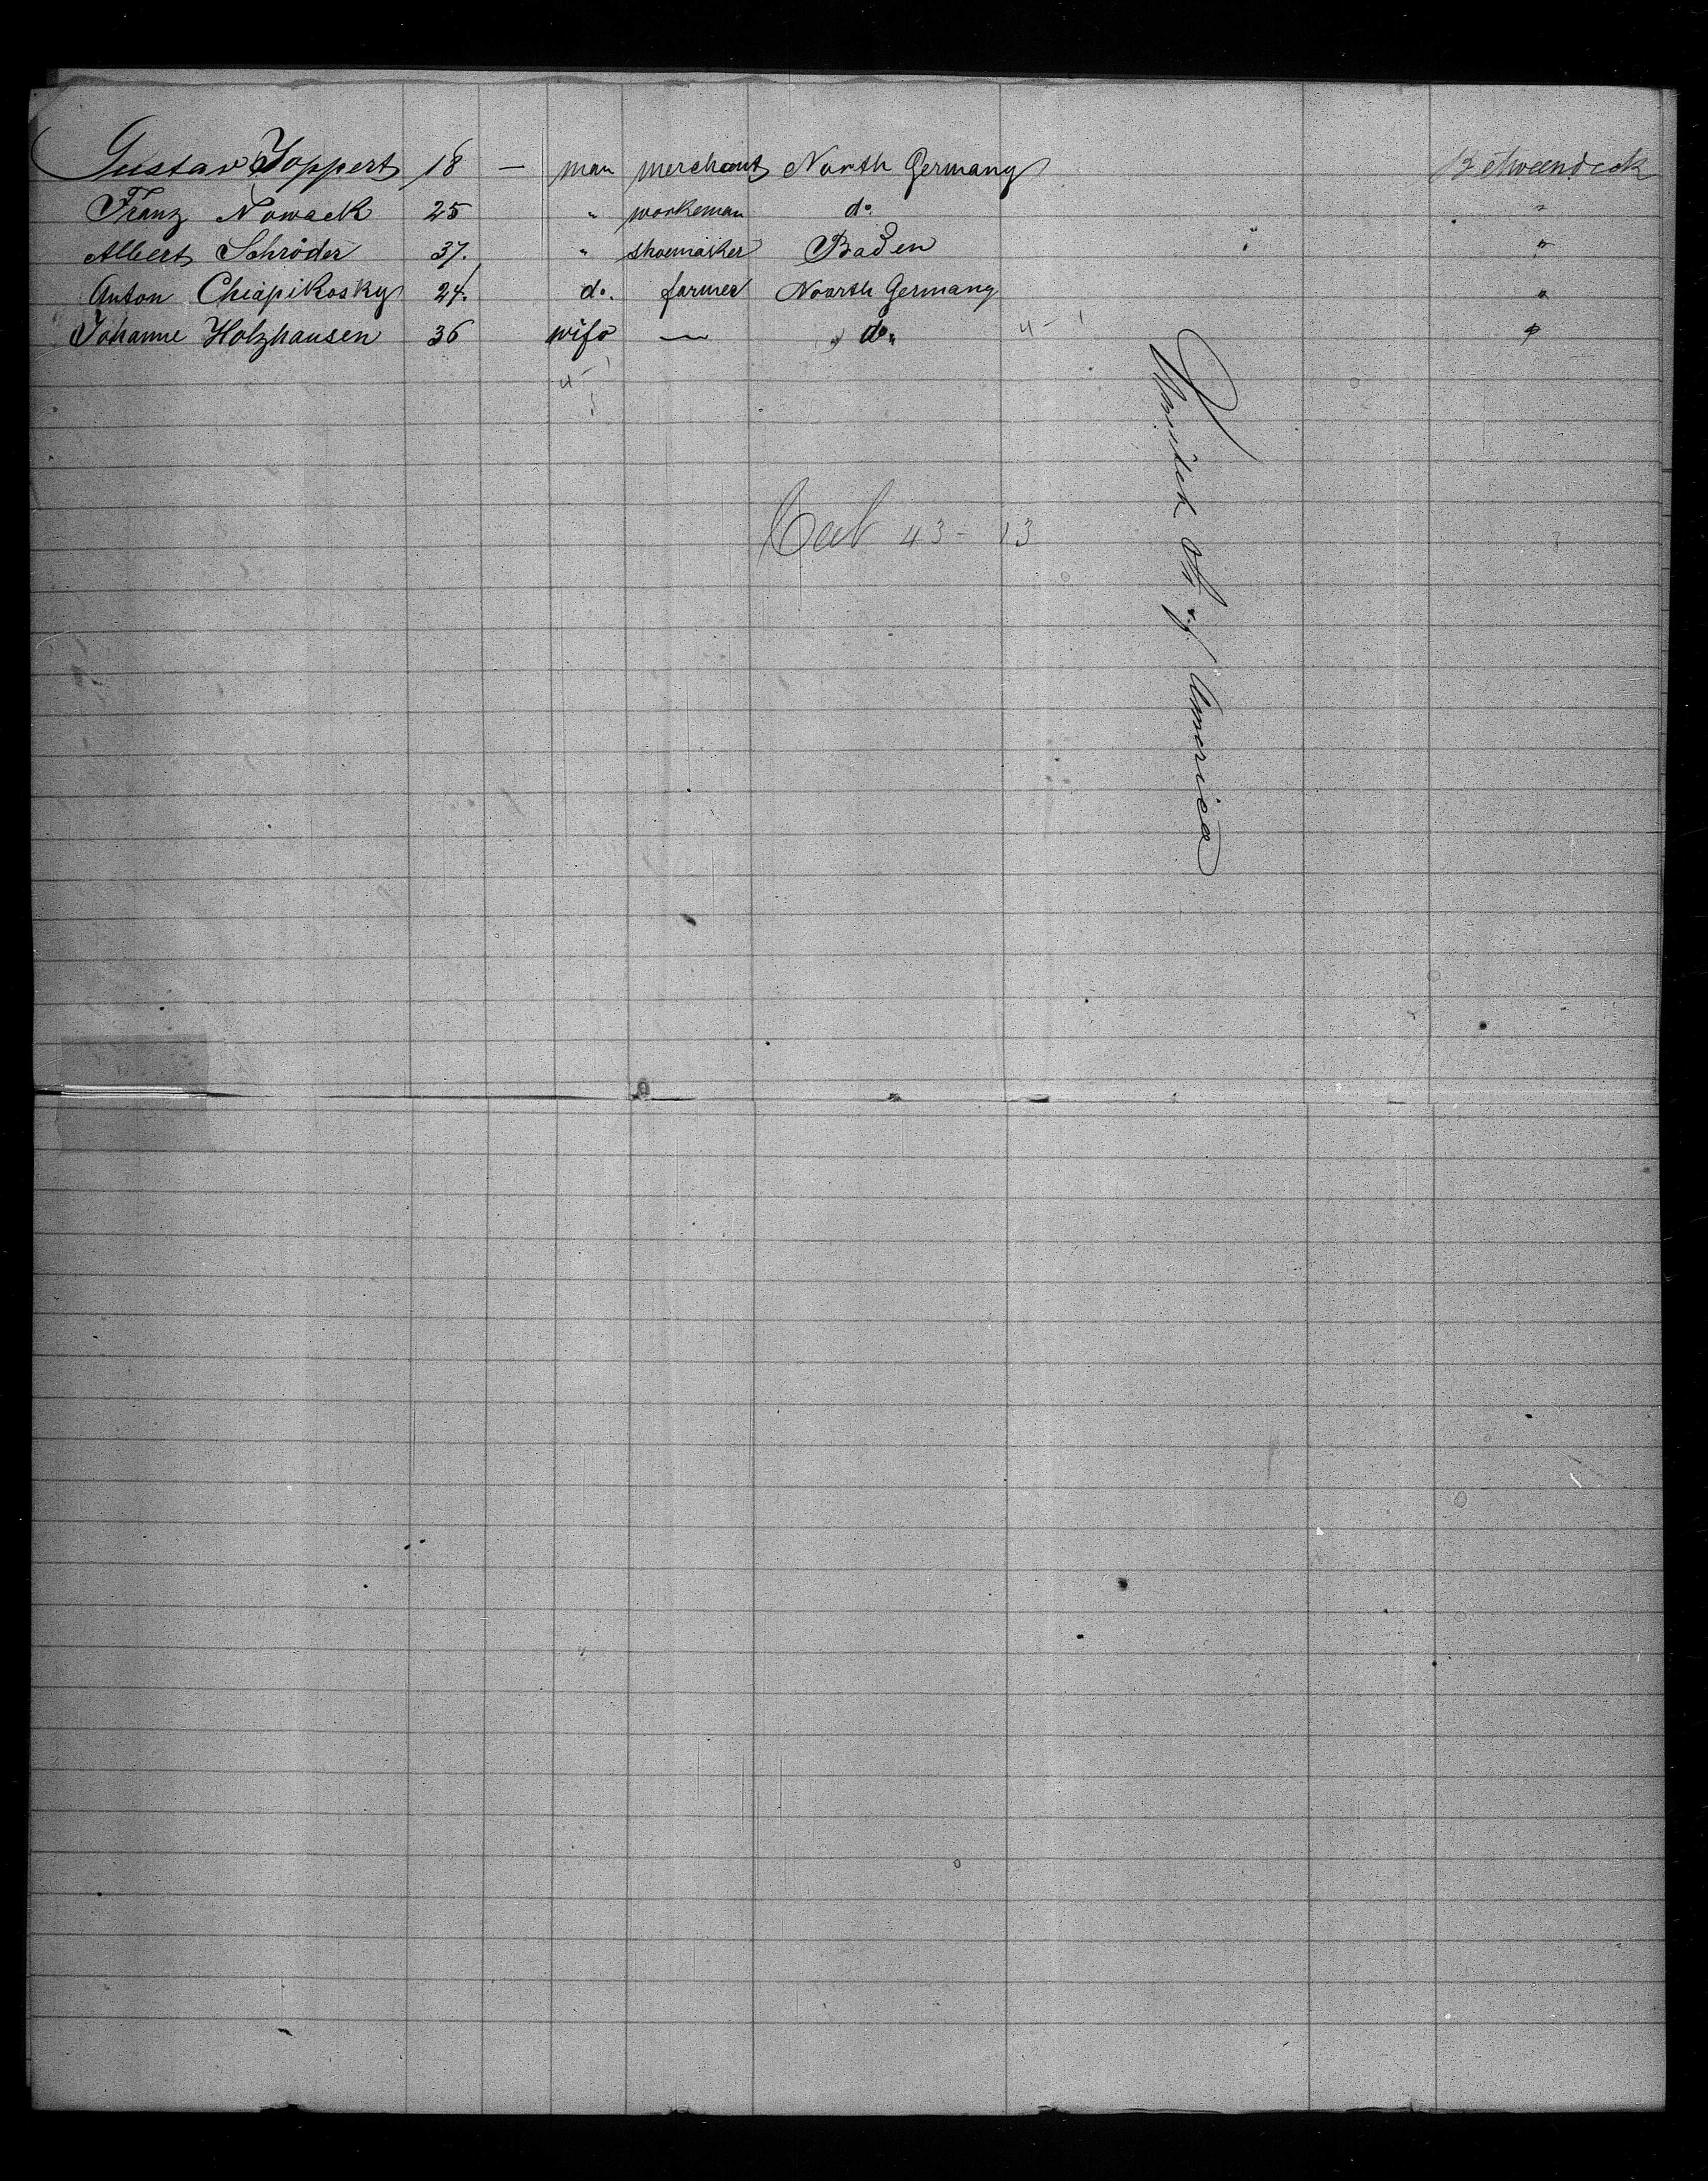 Gustav Joppert 18 — man merchant North Germany Betweendeck
Franz Nowack 25 " workeman do. "
Albert Schröder 37. " shoemaker Baden " "
Anton Chiapikosky 24. do. farmer Noorth Germany "
Johanne Holzhausen 36 wife — " do. 4-1 "
4-1
Cab 43-13
of America